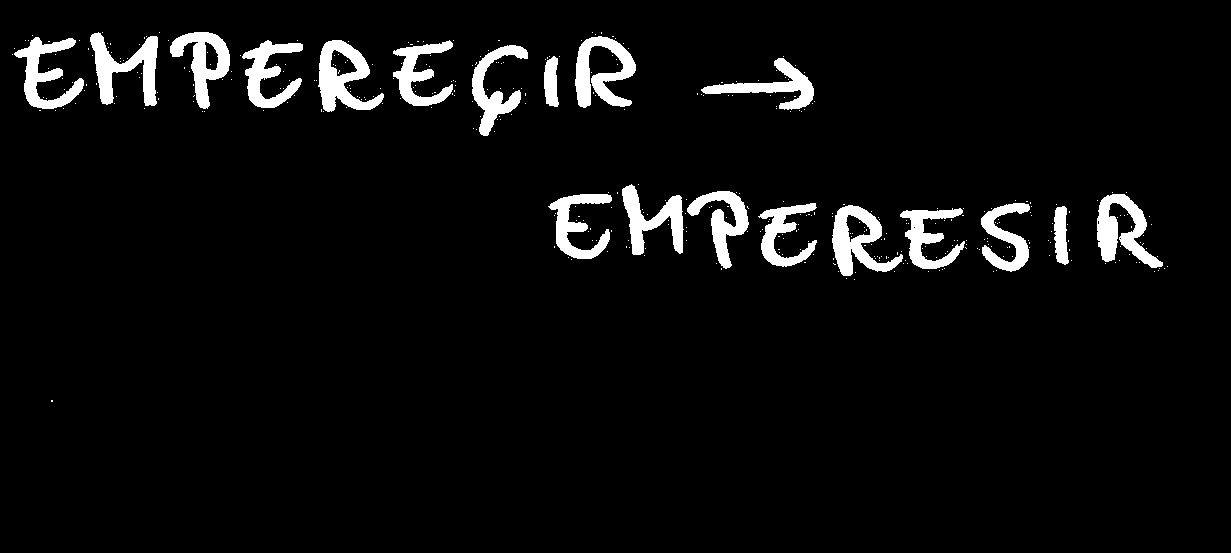 EMPEREÇIR →
EMPERESIR